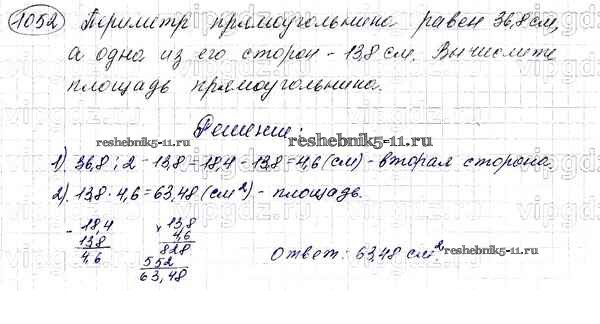 1052 Периметр прямоугольника равен 36,8 см,
а одна из его сторон - 13,8 см. Вычислите
площадь прямоугольника.
Решение:
reshebnik5-11.ru
reshebnik5-11.ru
1) 36,8 : 2 - 13,8 = 18,4 - 13,8 = 4,6 (см) - вторая сторона
2) 13,8 · 4,6 = 63,48 (см²) - площадь.
- 18,4
13,8
4,6
x 13,8
4,6
828
552
63,48
Ответ: 63,48 см²
reshebnik5-11.ru